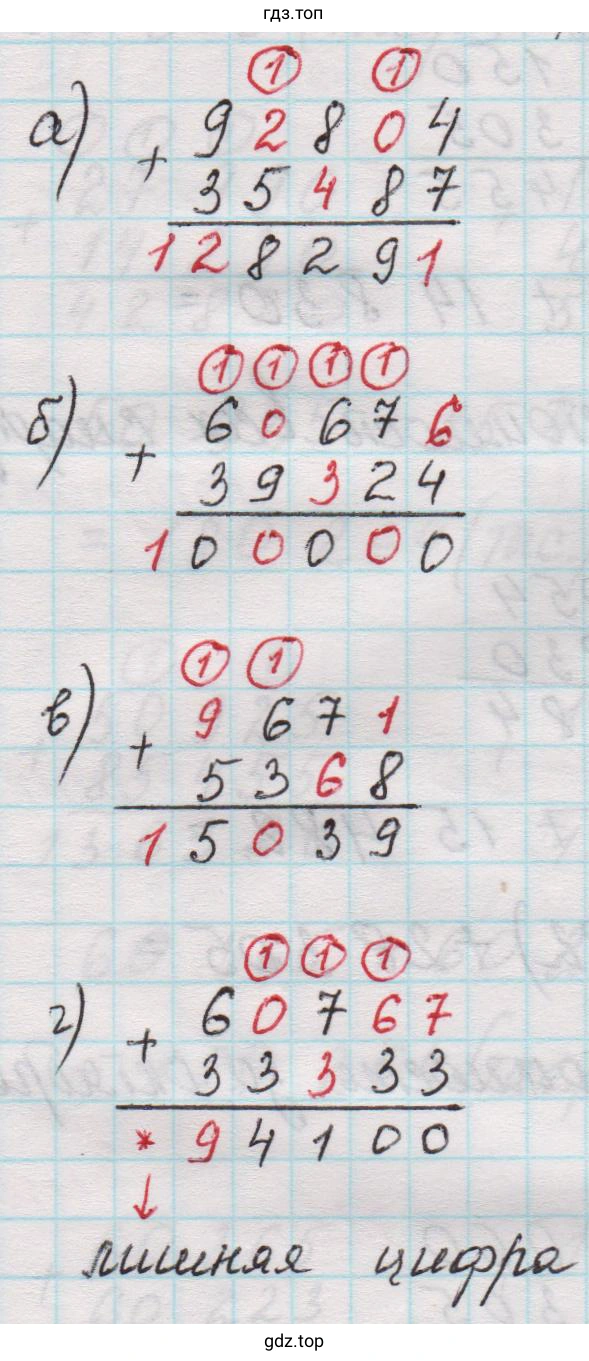 гдз.топ
① ①
а) 9 2 8 0 4
+
3 5 4 8 7
1 2 8 2 9 1
① ① ① ①
б) 6 0 6 7 6
+
3 9 3 2 4
1 0 0 0 0 0
① ①
в) 9 6 7 1
+
5 3 6 8
1 5 0 3 9
① ① ①
г) 6 0 7 6 7
+
3 3 3 3 3
* 9 4 1 0 0
↓
лишняя цифра
gdz.top